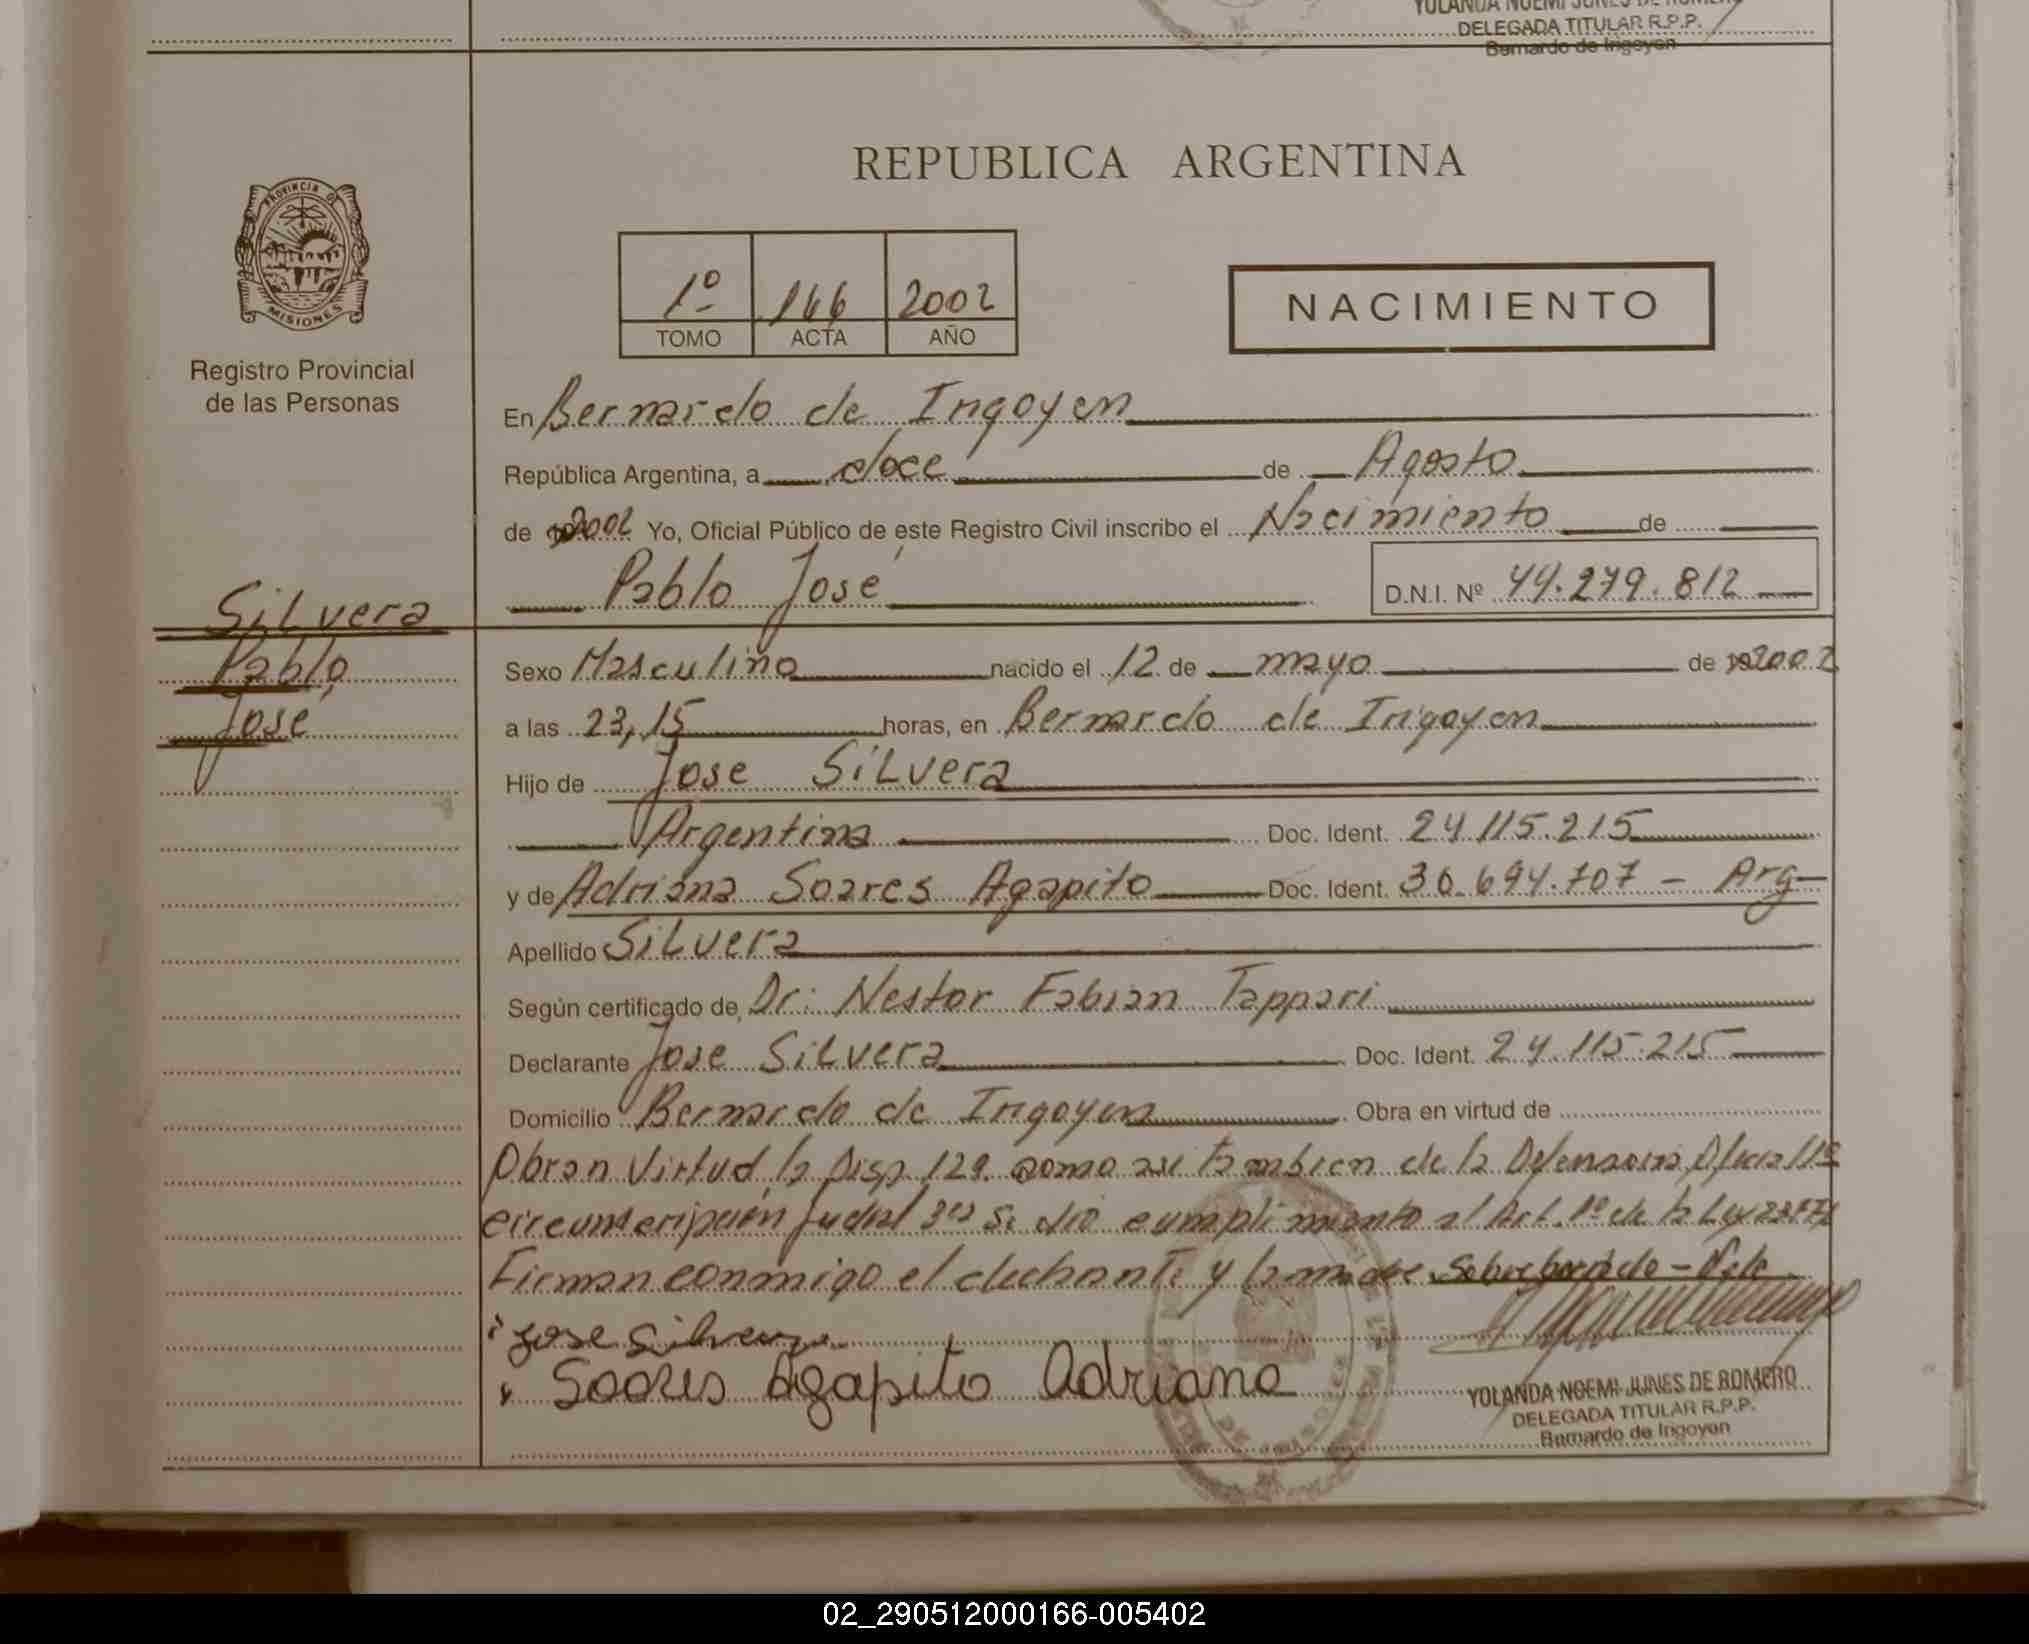 YOLANDA NOEMI JUNES DE ROMERO
DELEGADA TITULAR R.P.P.
Bernardo de Irigoyen
PROVINCIA DE
MISIONES
Registro Provincial
de las Personas
REPUBLICA ARGENTINA
1º 166 2002
TOMO ACTA AÑO
NACIMIENTO
En Bernardo de Irigoyen
República Argentina, a doce de Agosto
de 2002 Yo, Oficial Público de este Registro Civil inscribo el Nacimiento de
Pablo José D.N.I. Nº 44.279.812
Silvera
Pablo
José
Sexo Masculino nacido el 12 de mayo de 2002
a las 23,15 horas, en Bernardo de Irigoyen
Hijo de Jose Silvera
Argentina Doc. Ident. 24.115.215
y de Adriana Soares Agapito Doc. Ident. 30.694.707 - Arg-
Apellido Silvera
Según certificado de Dr: Nestor Fabian Tappari
Declarante Jose Silvera Doc. Ident. 24.115.215
Domicilio Bernardo de Irigoyen Obra en virtud de
Obran Virtud la Disp. 129. como asi tambien de la Defensoria Oficial
circunscripción Judial se dió cumplimiento al Art. 1º de la Ley
Firman conmigo el declarante y la madre Sobreborrado - Vale
Jose Silvera
Soares Agapito Adriana
YOLANDA NOEMI JUNES DE ROMERO
DELEGADA TITULAR R.P.P.
Bernardo de Irigoyen
02_290512000166-005402